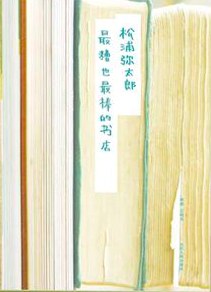 松浦弥太郎
最糟也最棒的书店